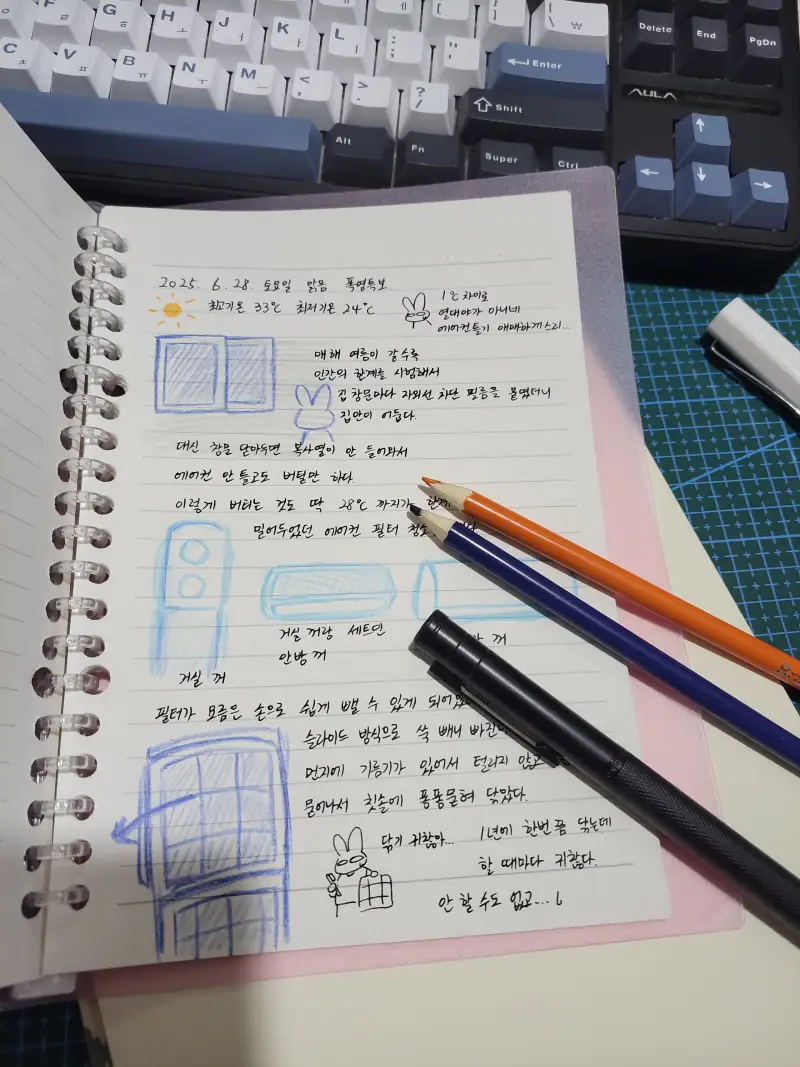 F ㄹ
G ㅎ
H ㅗ
J ㅓ
K ㅏ
L ㅣ
: ;
" '
Enter
| \ ₩
Delete
End
PgDn
C ㅊ
V ㅍ
B ㅠ
N ㅜ
M ㅡ
< ,
> .
? /
Shift
AULA
Alt
Fn
Super
Ctrl
2025. 6. 28. 토요일 맑음 폭염특보
최고기온 33℃ 최저기온 24℃
1℃ 차이로
열대야가 아니네
에어컨틀기 애매하게스리...
매해 여름이 갈수록
인간의 한계를 시험해서
집 창문마다 자외선 차단 필름을 붙였더니
집안이 어둡다.
대신 창문 닫아두면 복사열이 안 들어와서
에어컨 안 틀고도 버틸만 하다.
이렇게 버티는 것도 딱 28℃ 까지가 한계
밀어두었던 에어컨 필터 청소
거실 꺼
거실 꺼랑 세트인
안방 꺼
꺼
필터가 요즘은 손으로 쉽게 뺄 수 있게
슬라이드 방식으로 쓱 빼니
먼지에 기름기가 있어서 털리지 않고
묻어나서 칫솔에 퐁퐁묻혀 닦았다.
닦기 귀찮아...
1년에 한번 쯤 닦는데
할 때마다 귀찮다.
안 할 수도 없고...